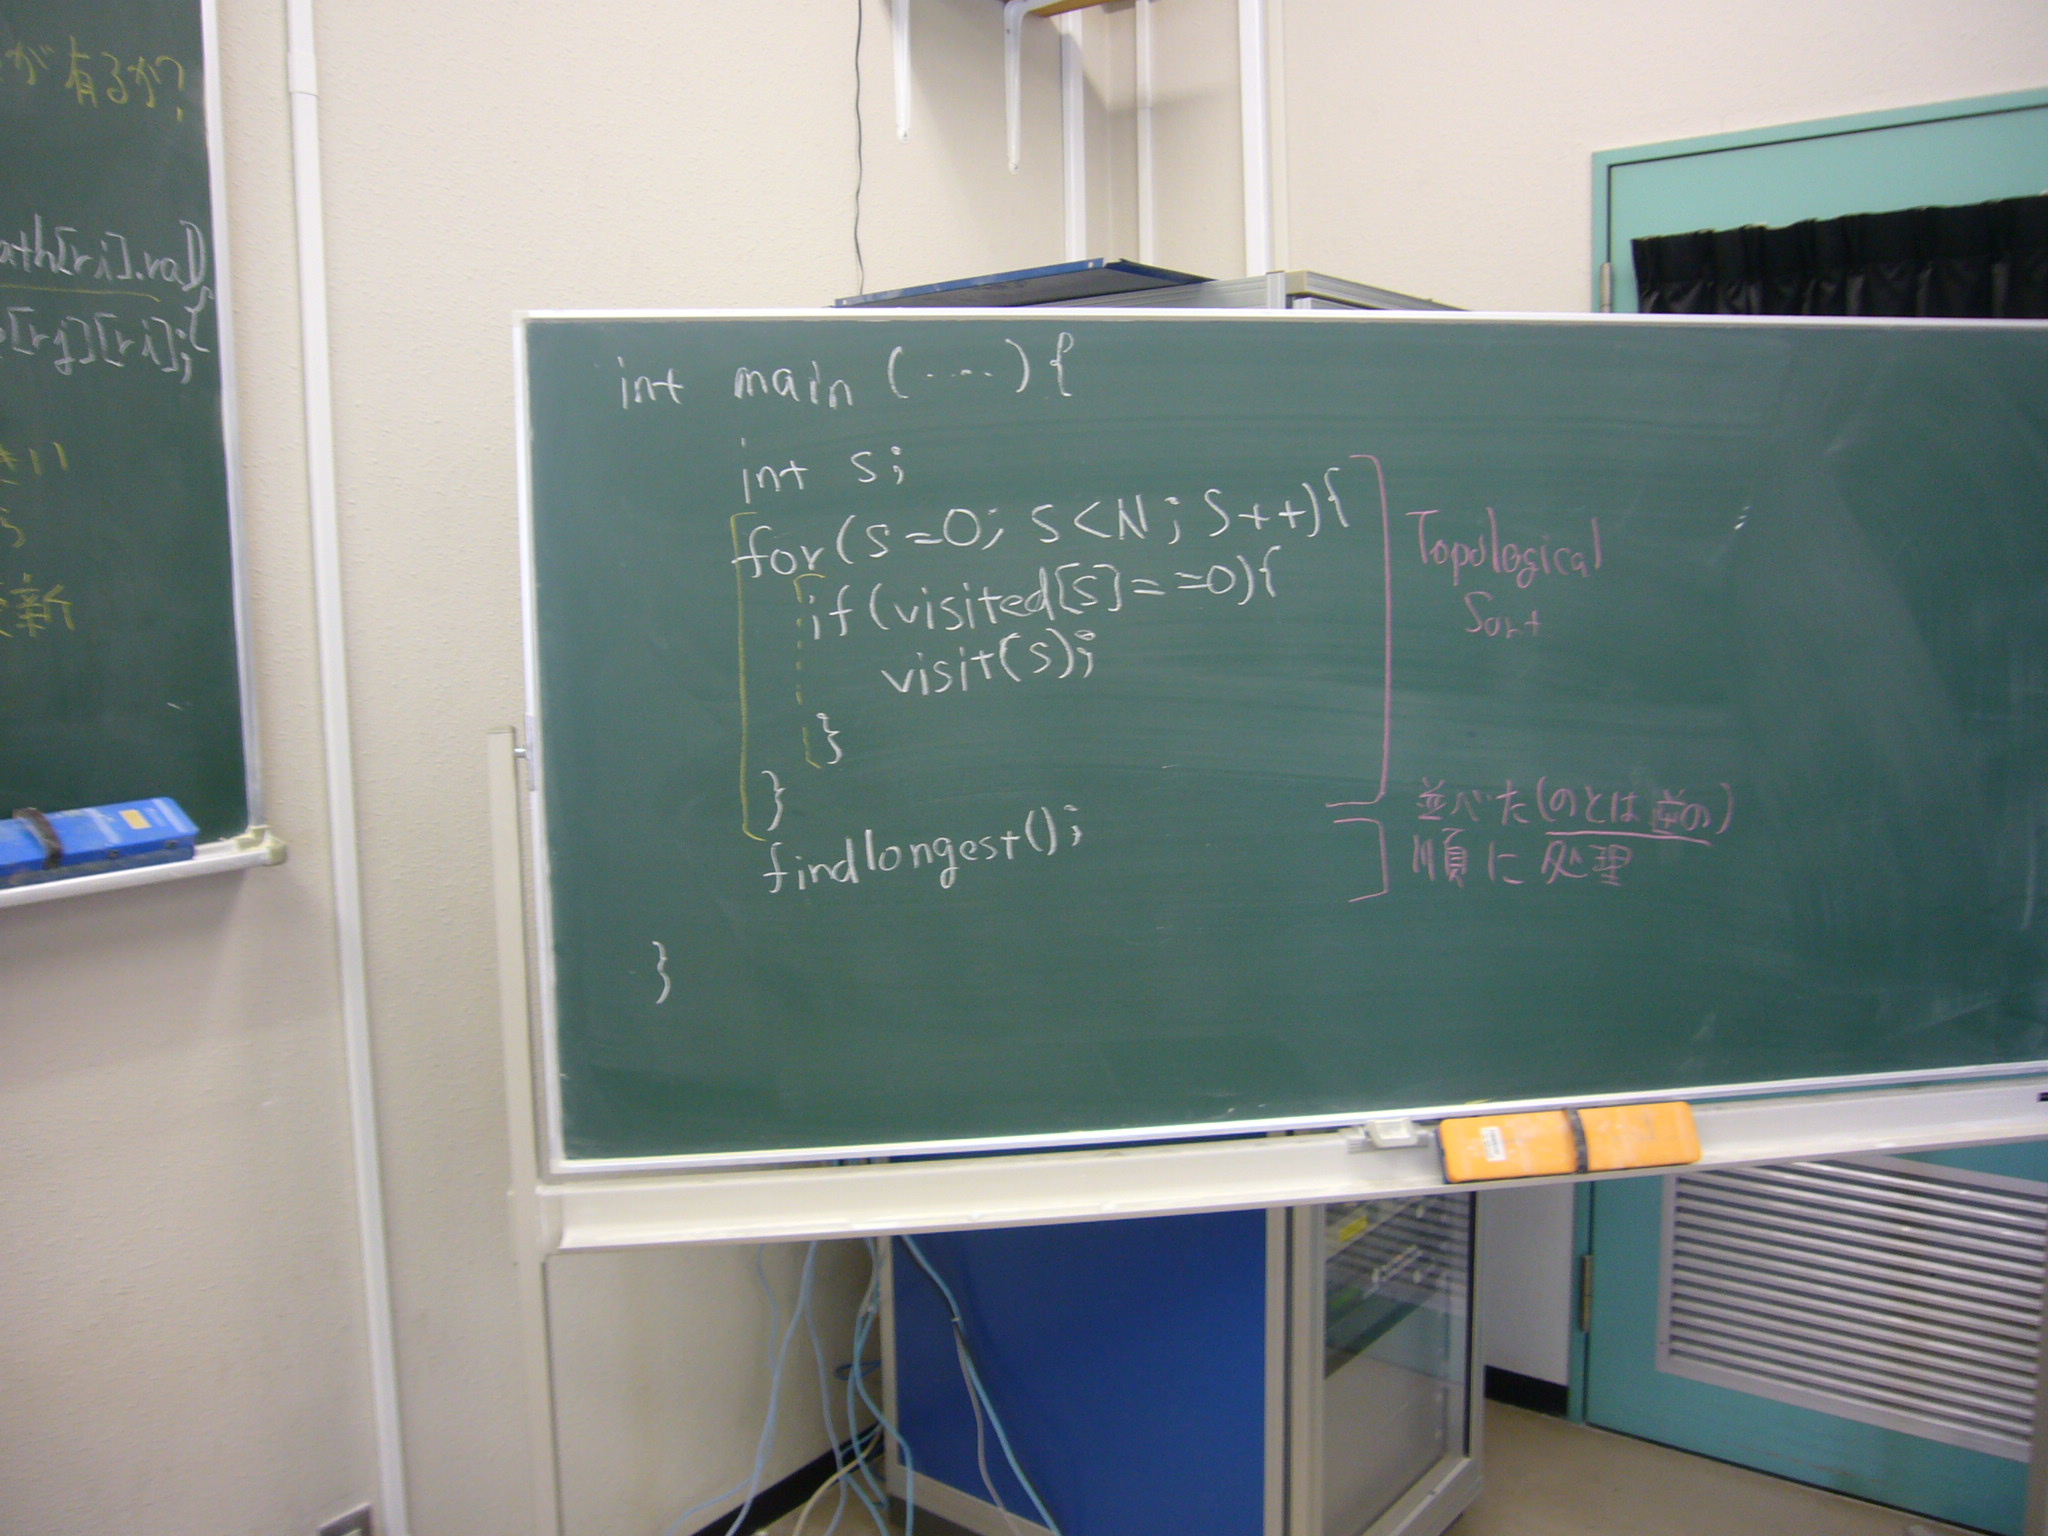 が有るか?
ath[ri].rad
[rj][ri];
新
int main (・・・・){
int s;
for(s=0; s<N; s++){
if(visited[s]==0){
visit(s);
}
}
findlongest();
}
Topological
Sort
並べた(のとは逆の)
順に処理